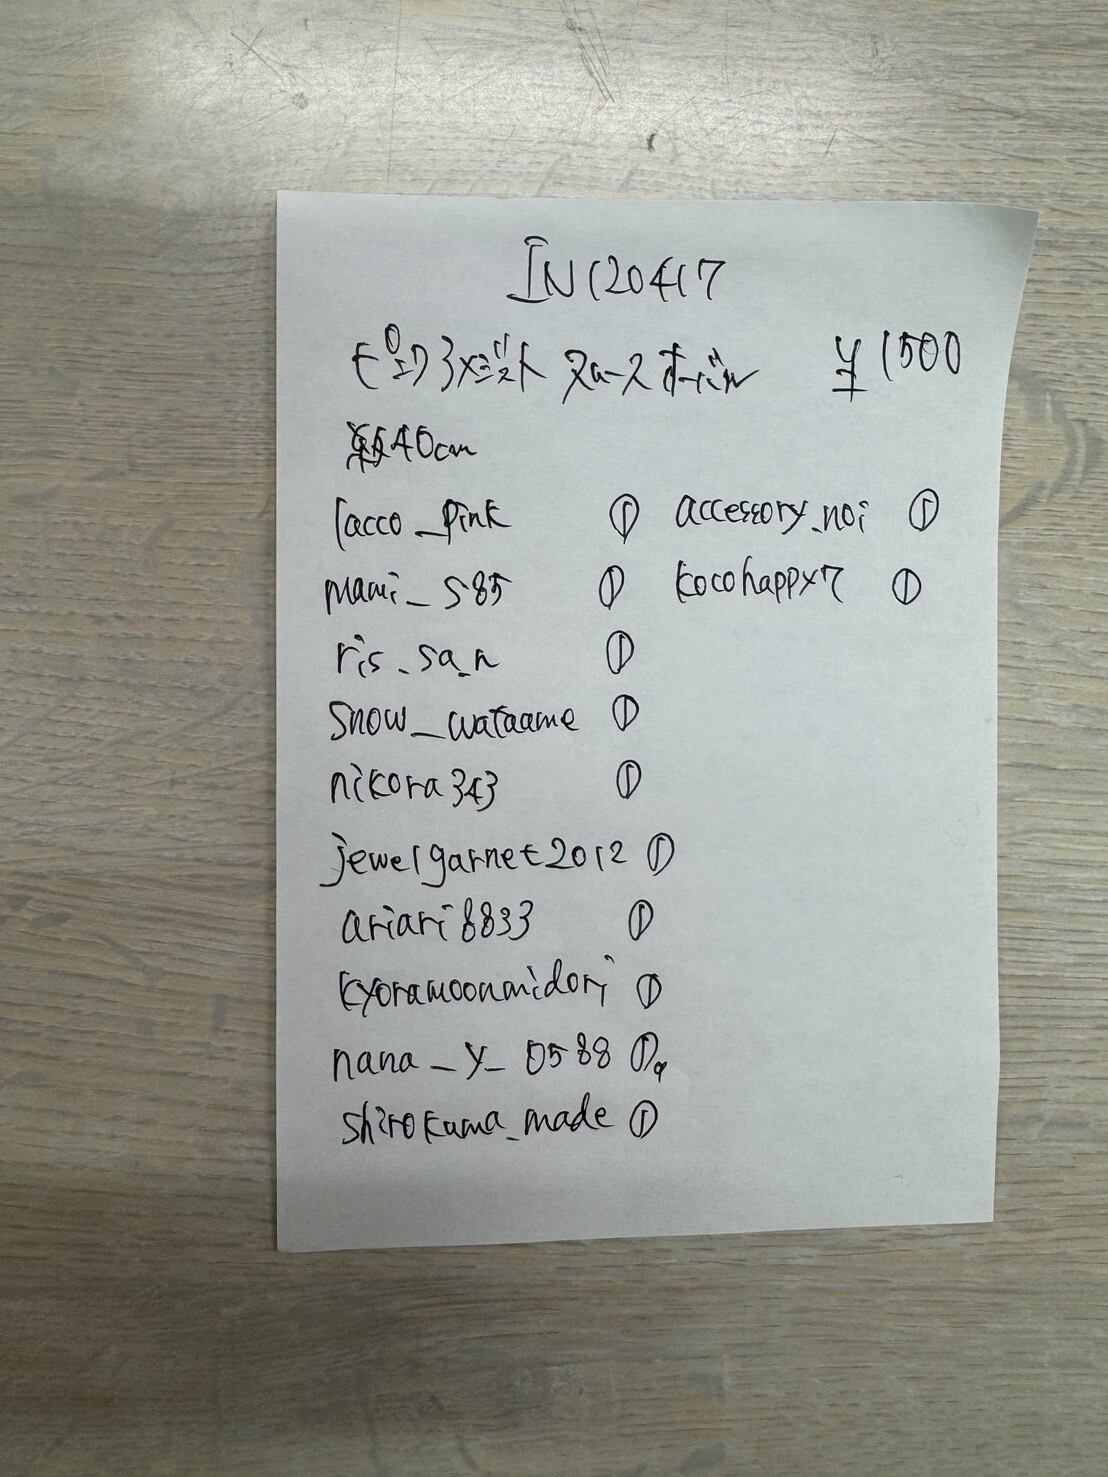 IN120417
ピンクアメジスト スムース オーバル ¥1500
約40cm
lacco_pink ① accessory_noi ①
mami_s85 ① kocohappy7 ①
ris_sa_n ①
snow_wataame ①
nikora343 ①
jewelgarnet2012 ①
ariari8833 ①
kyoramoonmidori ①
nana_y_0588 ①
shirokuma_made ①